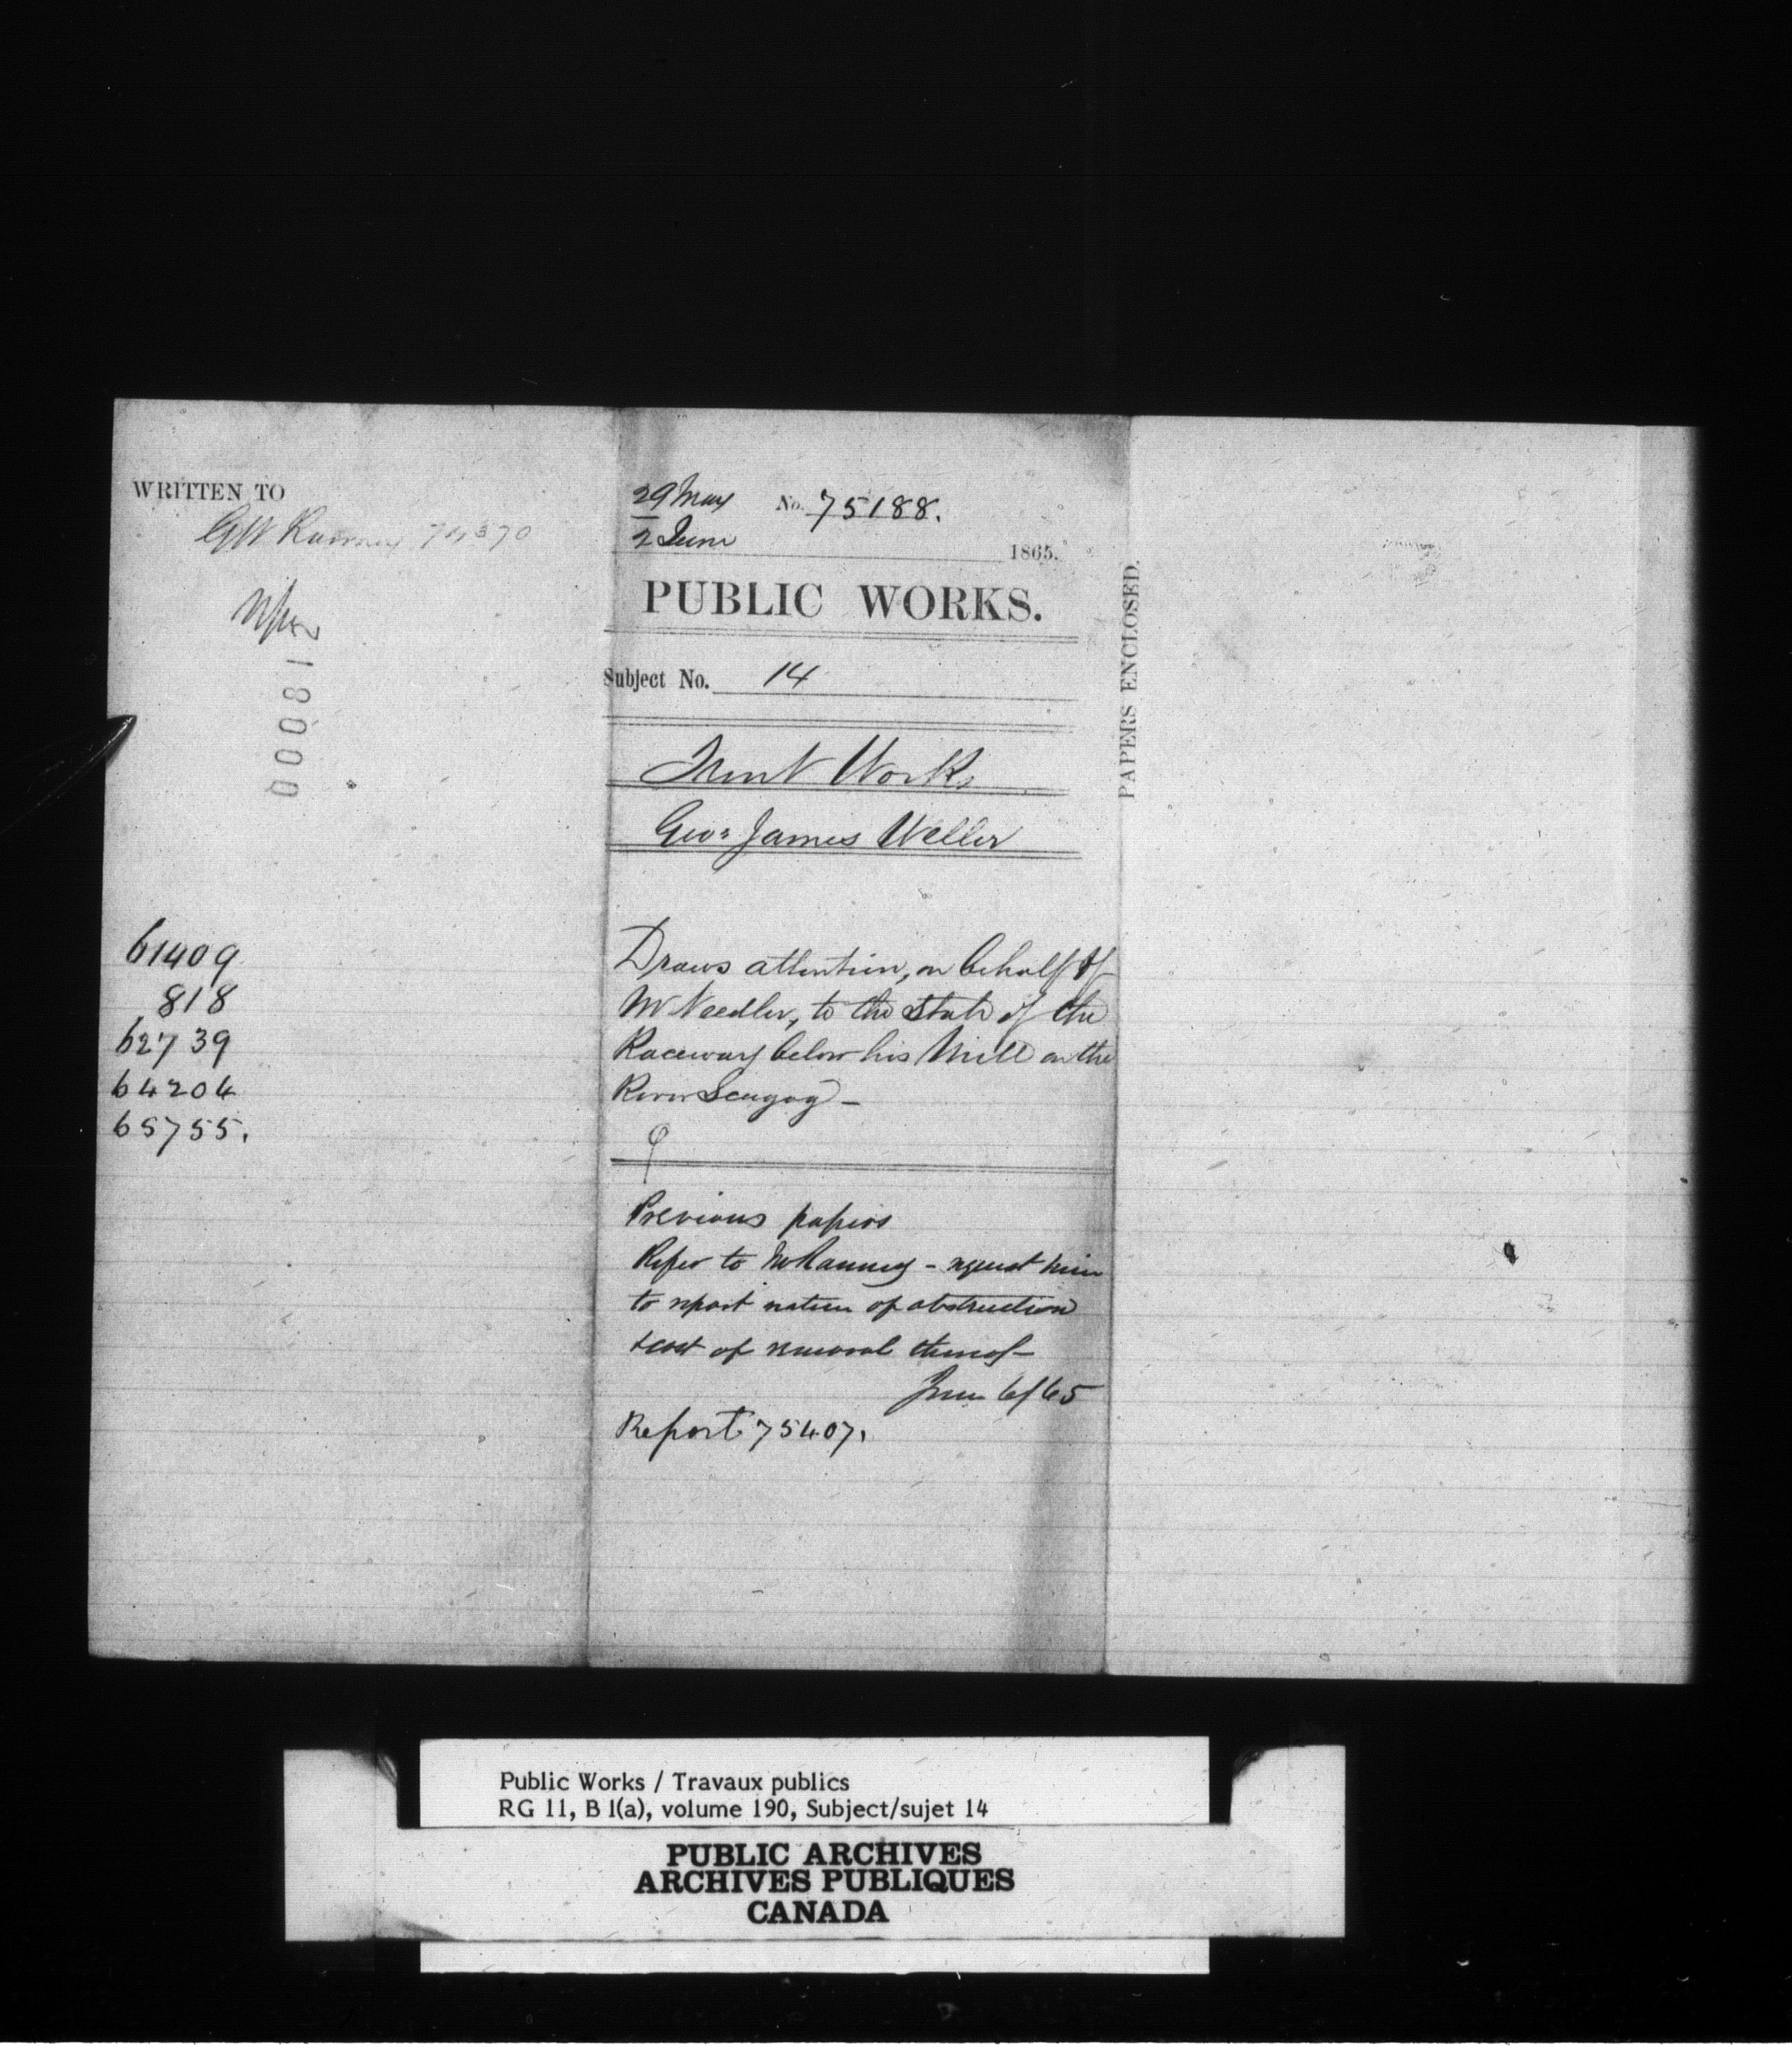 WRITTEN TO
G W Ranney
000812
61409
818
62739
64204
65755.
29 May
2 June
No. 75188.
1865.
PUBLIC WORKS.
Subject No. 14
Trent Works
Geo: James Weller
Draws attention, on behalf of
Mr Needler, to the state of the
Raceway below his Mill on the
River Scugog —
Previous papers
Refer to Mr Ranney - request him
to report nature of obstruction
& cost of removal thereof —
June 6/65
Report 75407.
PAPERS ENCLOSED.
Public Works / Travaux publics
RG 11, B 1(a), volume 190, Subject/sujet 14
PUBLIC ARCHIVES
ARCHIVES PUBLIQUES
CANADA